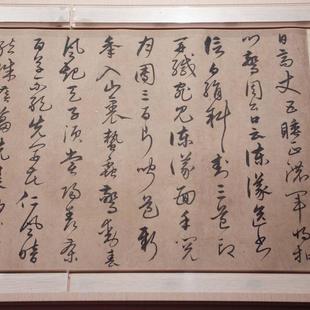 日高丈五睡正濃軍將打
門驚周公口云諫議送書
信白絹斜封三道印
開緘宛見諫議面手閱
月團三百片聞道新
年入山裏蟄蟲驚動春
風起天子須嘗陽羨茶
百草不敢先開花仁風暗
結珠先春